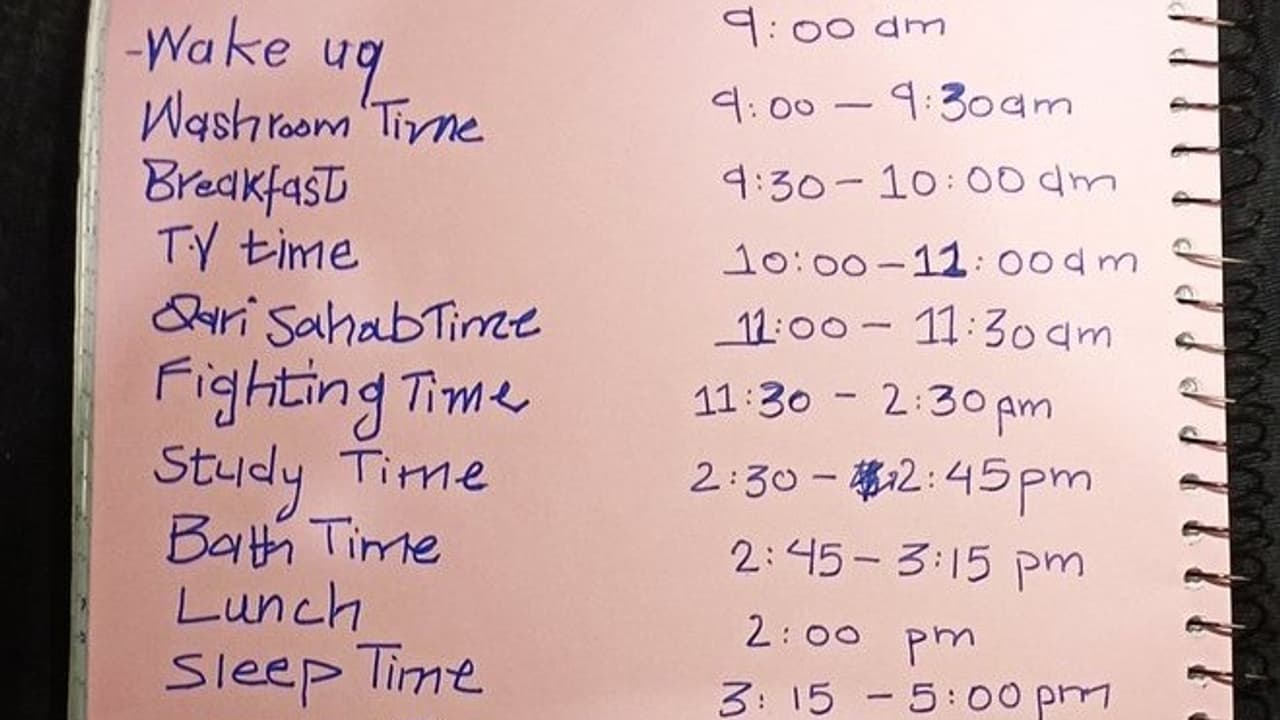 -Wake up 9:00 am
Washroom Time 9:00 – 9:30am
Breakfast 9:30 – 10:00 am
T.V time 10:00 – 11:00am
Qari Sahab Time 11:00 – 11:30am
Fighting Time 11:30 - 2:30pm
Study Time 2:30 – 2:45pm
Bath Time 2:45 – 3:15 pm
Lunch 2:00 pm
Sleep Time 3:15 – 5:00pm